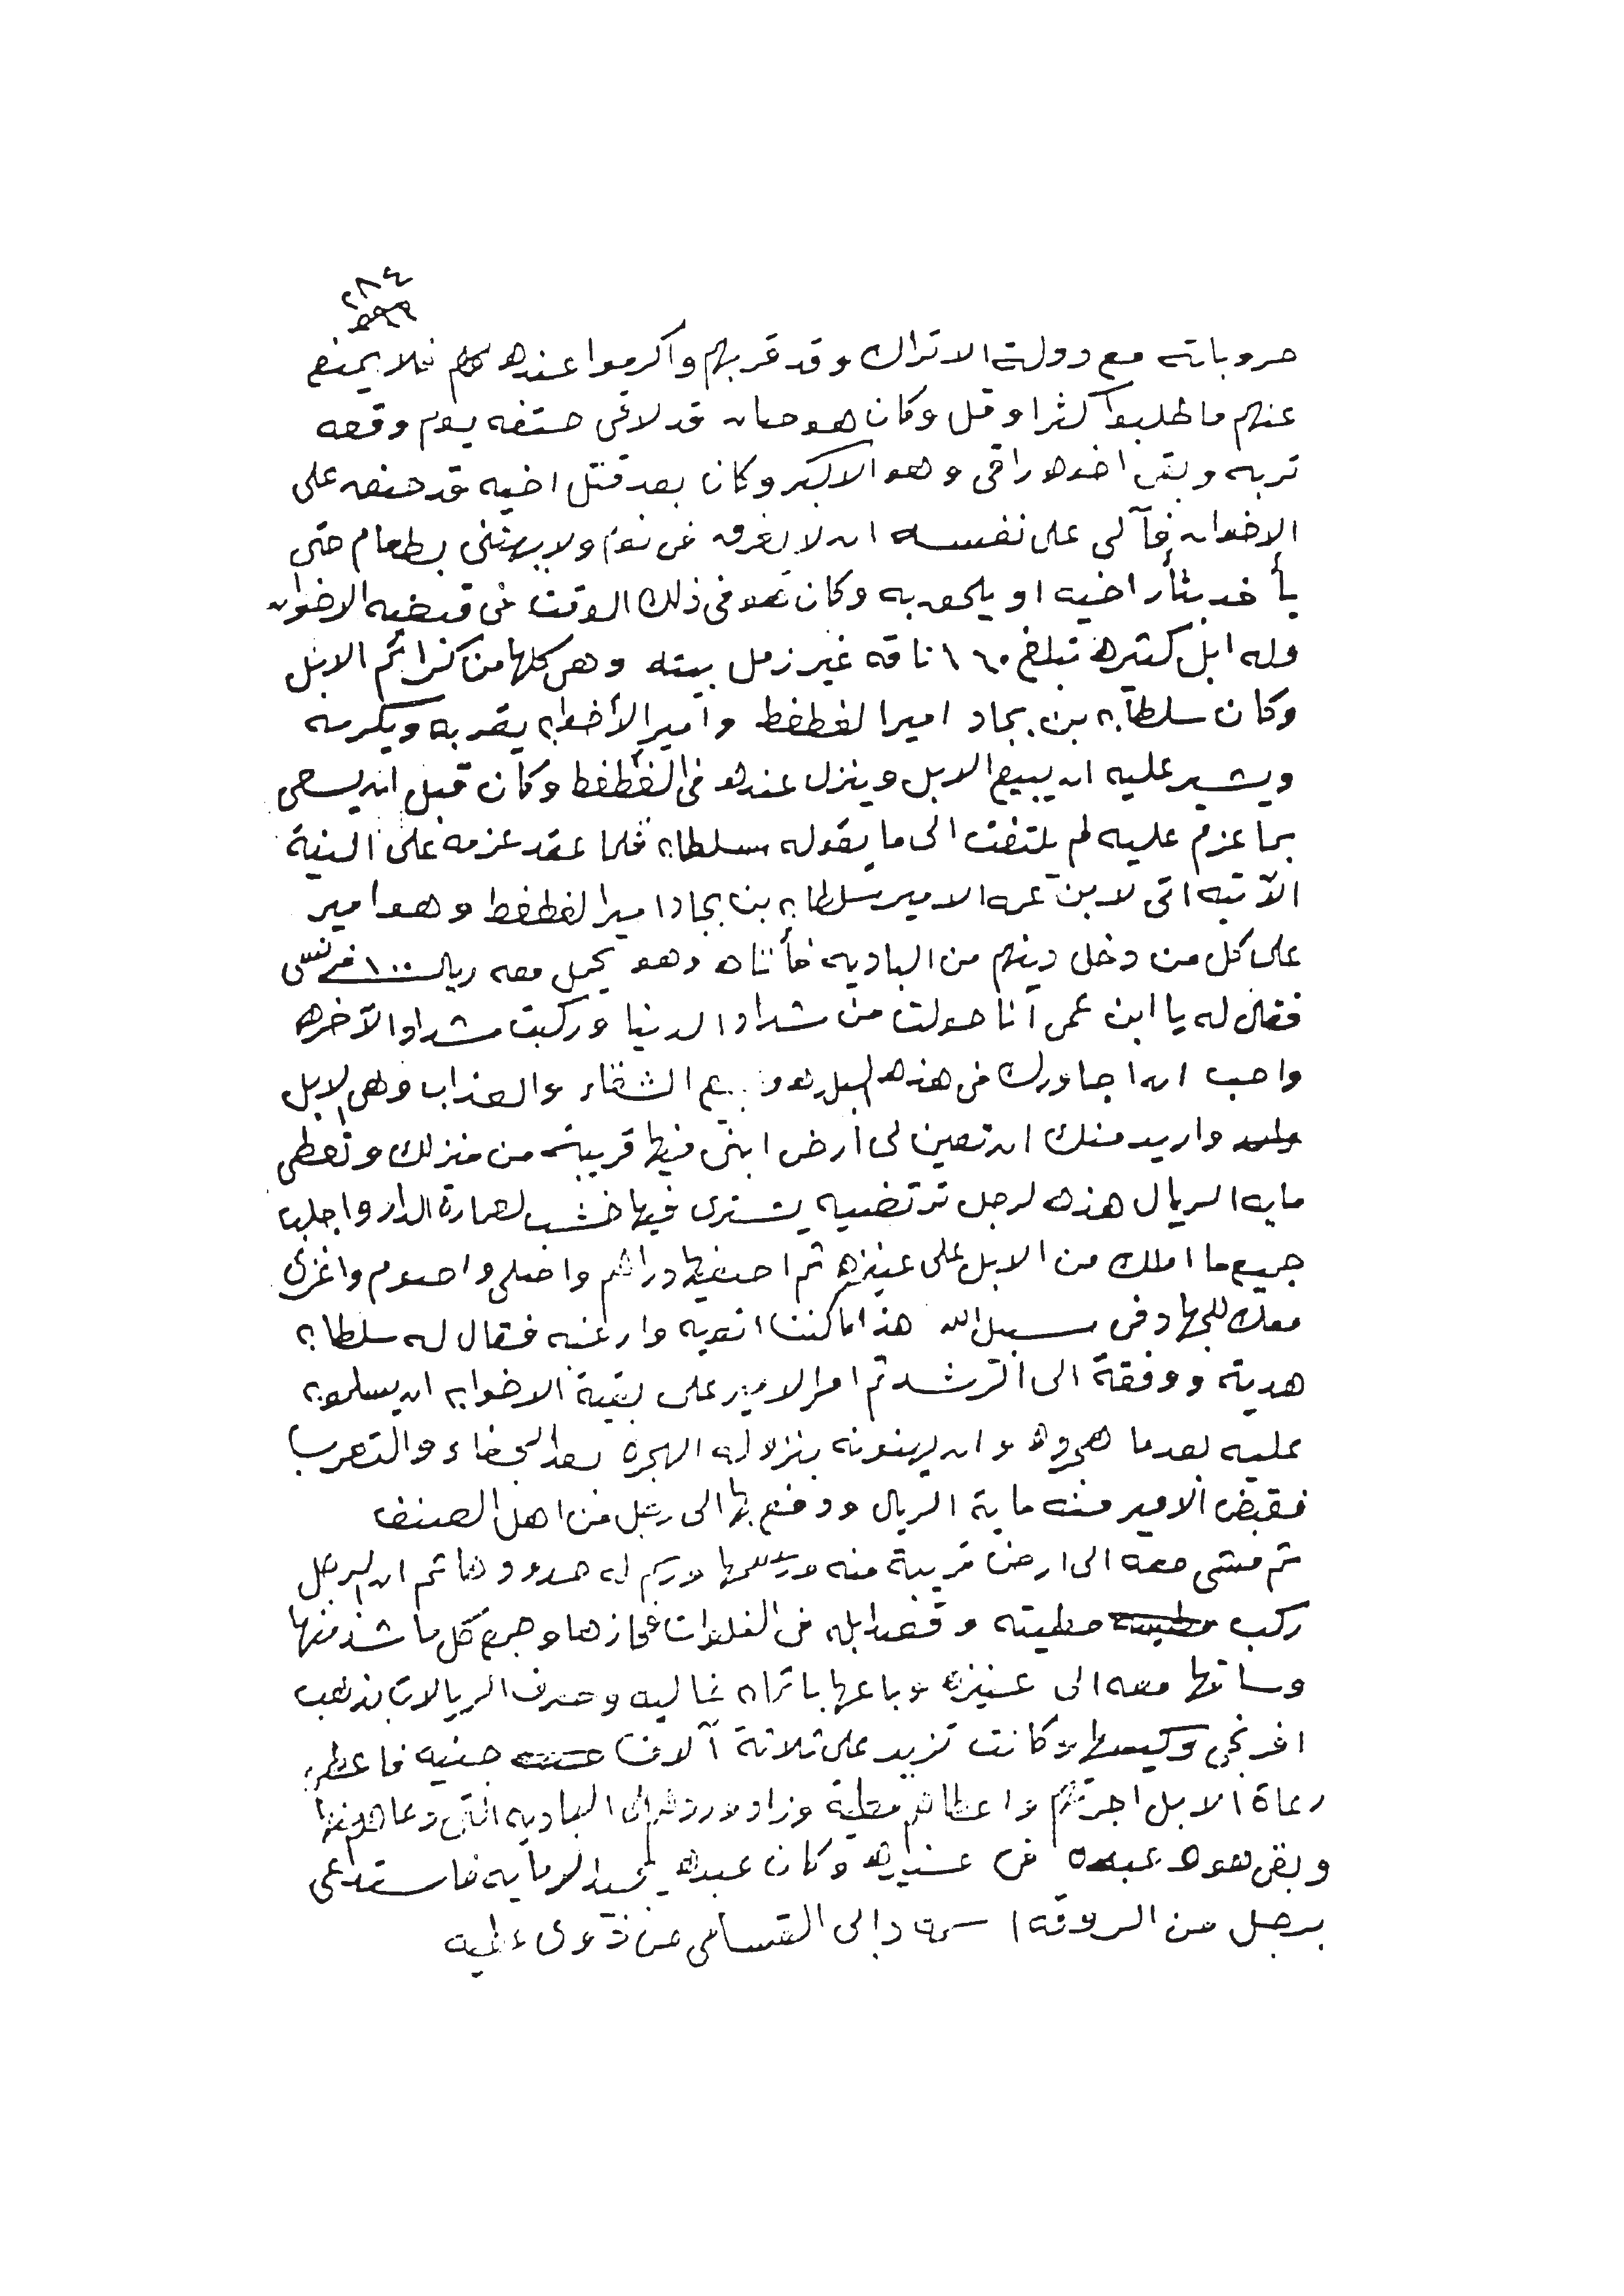 ٢٨٤
حروباته مع دولة الاتراك وقد قربهم واكرموا عنده فلا يمنع
عنهم ما طلبوا كثرا و قل وكان هو حيان قد لاقى حتفه يوم وقعه
تربه وبقى اخوه راقى وهو الاكبر وكان بعد قتل اخيه قد حنق على
الاخوان فآلى على نفسه ان لا يغرق في نوم ولا يهتنى بطعام حتى
يأخذ بثأر اخيه او يلحق به وكان هو في ذلك الوقت في قبضة الاخوان
وله ابل كثيره تبلغ ١٦٠ ناقه غير زمل بيته وهي كلها من كرائم الابل
وكان سلطان بن بجاد امير الغطغط وأمير الأخوان يقربه ويكرمه
ويشير عليه ان يبيع الابل وينزل عنده في الغطغط وكان قبل ان يسعى
بما عزم عليه لم يلتفت الى ما يقوله سلطان فلما عقد عزمه على النية
الآتيه اتى لابن عمه الامير سلطان بن بجاد امير الغطغط وهو امير
على كل من دخل دينهم من الباديه فأتاه وهو يحمل معه ريال ١٠٠ فرنسي
فقال له يا ابن عمي أنا حولت من شداد الدنيا وركبت شداد الآخره
واحب ان اجاورك في هذه البلد و بيع الشقاء والعذاب وهي الابل
واريد منك ان تعين لى أرض ابني فيها قريبة من منزلك وتعطى
مايه الريال هذه لرجل ترتضيه يشترى فيها خشب لعمارة الدار واجلب
جميع ما املك من الابل على عنيزه ثم احفيها دراهم واصلى واصوم واغزى
معك للجهاد في سبيل الله هذا ما كنت انويه وارغبه فقال له سلطان
هديت ووفقة الى الرشد ثم امر الامير على بقية الاخوان ان يسلمون
عليه بعدما هجروه وان يهنونه بنزوله الهجره بعد الجفاء والتعرب
فقبض الامير منه ماية الريال ودفع بها الى رجل من اهل الصنف
ثم مشى معه الى ارض قريبة منه ورسمها ورسم له حدودها ثم ان الرجل
ركب مطيته وقصد ابله في الفلوات فحازها وجمع كل ما شذ منها
وساقها معه الى عنيزه وباعها باثمان غاليه وصرف الريالات بذهب
افرنجى وكيسها وكانت تزيد على ثلاثة آلاف جنيه فاعطى
رعاة الابل اجرتهم واعطاهم مطية وزاد وردهم الى الباديه التي دعاهم منها
وبقى هو وعبده في عنيزه وكان عبده يجيد الرمايه فاستدعى
برجل من الروقه اسمه دابى القسامى من ذوى عطيه